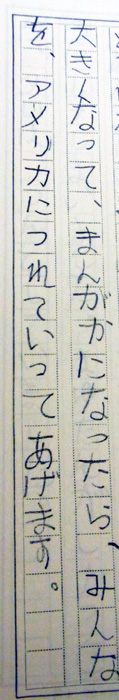 大きくなって、まんがかになったら、みんな
を、アメリカにつれていってあげます。